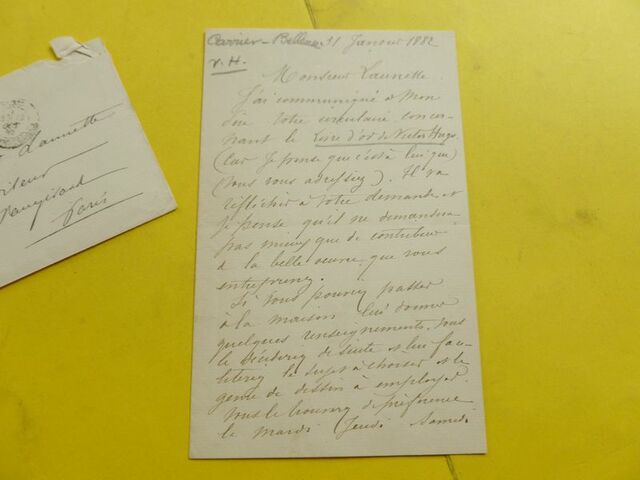 Carrier-Belleuse 11 Janvier 1882
V. H.
Monsieur Launette
J'ai communiqué à Mon
père votre circulaire concer-
nant le Livre d'or de Victor Hugo.
(car Je pense que c'est à lui que)
(vous vous adressiez). Il va
réfléchir à votre demande et
je pense qu'il ne demandera
pas mieux que de contribuer
à la belle oeuvre que vous
entreprenez.
Si vous pouvez passer
à la maison lui donner
quelques renseignements, vous
le déciderez de suite et lui faci-
literez le sujet à choisir et le
genre de dessin à employer.
Vous le trouverez de préférence
le mardi Jeudi Samedi
Launette
Editeur
Vaugirard
Paris